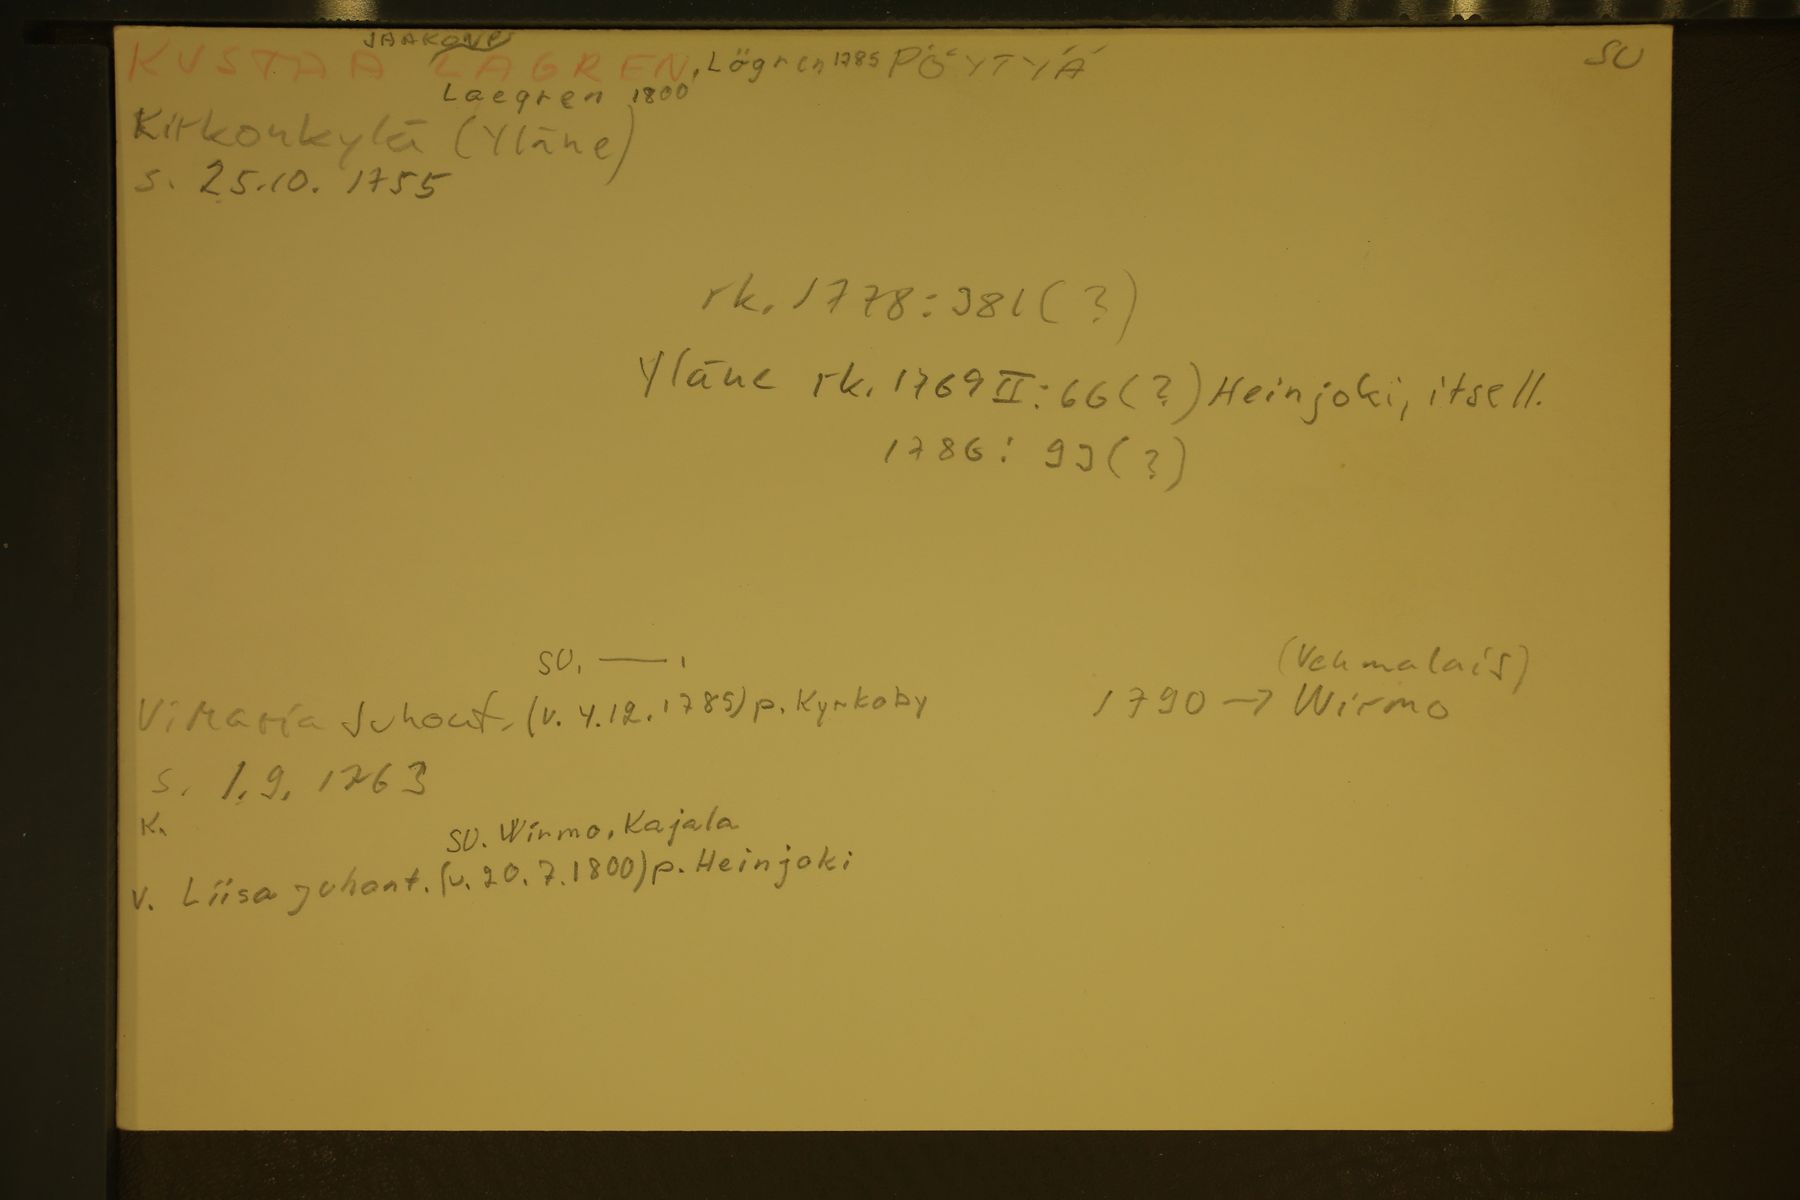 JAAKONP.
KUSTAA LAGREN, Lögren 1785 PÖYTYÄ SU
Laegren 1800
Kirkonkylä (Yläne)
s. 25.10. 1755
rk. 1778: 381 (?)
Yläne rk. 1769 II: 66 (?) Heinjoki, itsell.
1786: 99 (?)
SU. —— ,
(Vehmalais)
V: Maria Juhont. (v. 4.12.1785) p. Kyrkoby 1790 -> Wirmo
s. 1.9. 1763
K.
SU. Wirmo, Kajala
V. Liisa Juhont. (v. 20.7.1800) p. Heinjoki